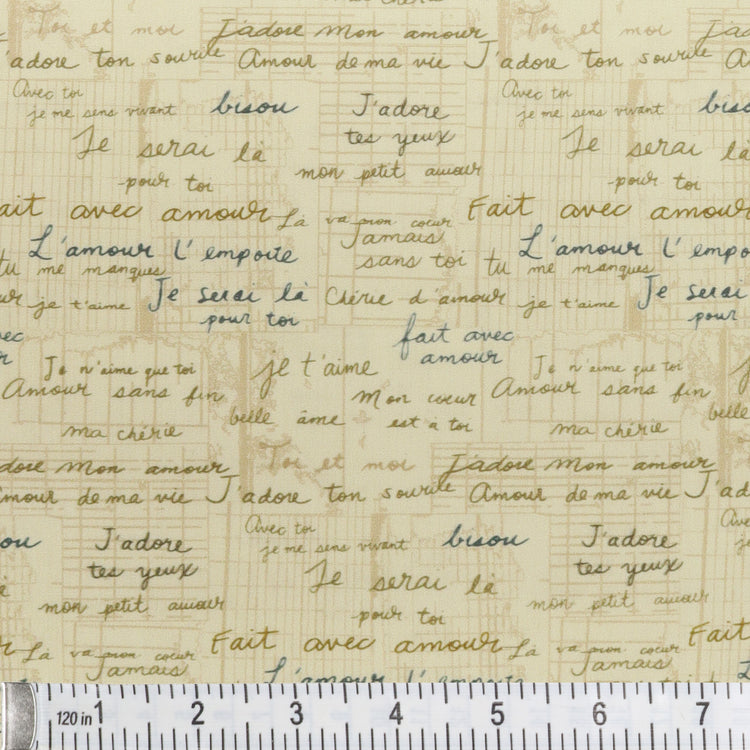 ma chérie
Toi et moi J'adore mon amour Toi et moi
J'adore ton sourire Amour de ma vie J'adore ton sourire
Avec toi Avec toi
je me sens vivant bisou J'adore je me sens vivant
tes yeux
Je serai là Je serai là
pour toi mon petit amour pour toi
Fait avec amour Là va mon cœur Fait avec amour
L'amour l'emporte Jamais L'amour
tu me manques sans toi tu me manques
je t'aime Je serai là Chérie d'amour je t'aime Je serai
pour toi pour
fait avec
amour
Je n'aime que toi je t'aime Je n'aime que toi
Amour sans fin Mon cœur Amour sans fin
belle âme est à toi belle
ma chérie ma chérie
mon amour Toi et moi J'adore mon amour
Amour de ma vie J'adore ton sourire Amour de ma vie
Avec toi
J'adore je me sens vivant bisou J'adore
tes yeux Je serai là tes yeux
mon petit amour pour toi mon petit amour
Là va mon cœur Fait avec amour Là va mon cœur Fait
Jamais L'amour l'emporte Jamais
120 in 1 2 3 4 5 6 7